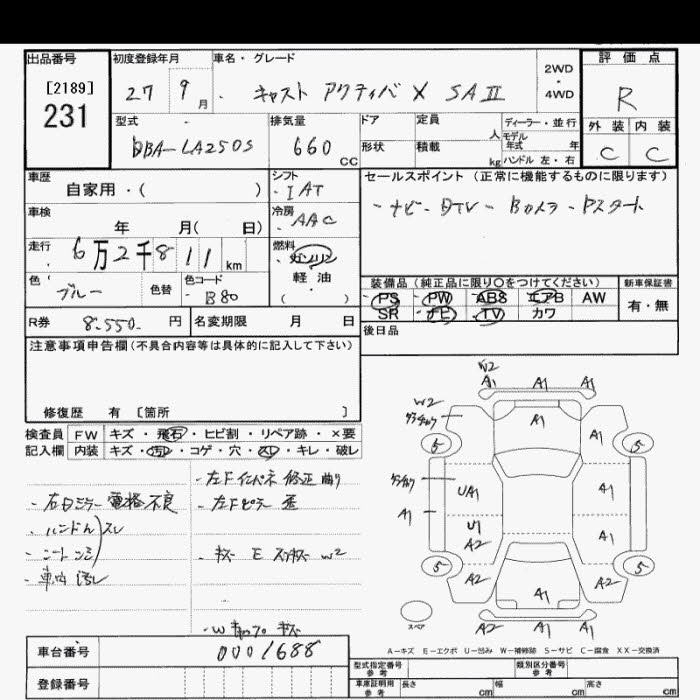 出品番号
[2189]
231
初度登録年月
27 9月
車名・グレード
キャスト アクティバ X SAⅡ
2WD
・
4WD
評価点
R
外装 内装
C C
型式
DBA-LA250S
排気量
660 CC
ドア
形状
定員 人
積載 kg
ディーラー・並行
モデル年式 年
ハンドル 左・右
車歴
自家用・( )
シフト
IAT
車検
年 月( 日)
冷房
AAC
走行
6万2千811km
燃料
ガソリン
軽油
( )
色
ブルー
色替
色コード
B80
セールスポイント(正常に機能するものに限ります)
ナビ-DTV-Bカメラ-Pスタート
装備品(純正品に限り〇をつけてください)
PS PW ABS エアB AW
SR ナビ TV カワ
新車保証書
有・無
R券 8.550. 円
名変期限 月 日
後日品
注意事項申告欄(不具合内容等は具体的に記入して下さい)
修復歴 有 [箇所 ]
検査員 FW キズ・飛石・ヒビ割・リペア跡・×要
記入欄 内装 キズ・汚れ・コゲ・穴・スレ・キレ・破レ
左Fインパネ 修正 曲り
右Dミラー 電格不良
左Fピラー 歪
ハンドルスレ
シートシミ
キズ E スリキズ W2
車内 汚レ
キズ
W2
A1 A1 A1
W2
A1 A1
5 5
UA1 A1
A1
U1
A2 A1
5 5
A2 A1 A2
スペア
A2 A1 A1
A-キズ E-エクボ U-凹み W-補修跡 S-サビ C-腐食 XX-交換済
車台番号 0001688
登録番号
型式指定番号 参考
類別区分番号 参考
車庫証明用 参考 長さ cm 幅 cm 高さ cm